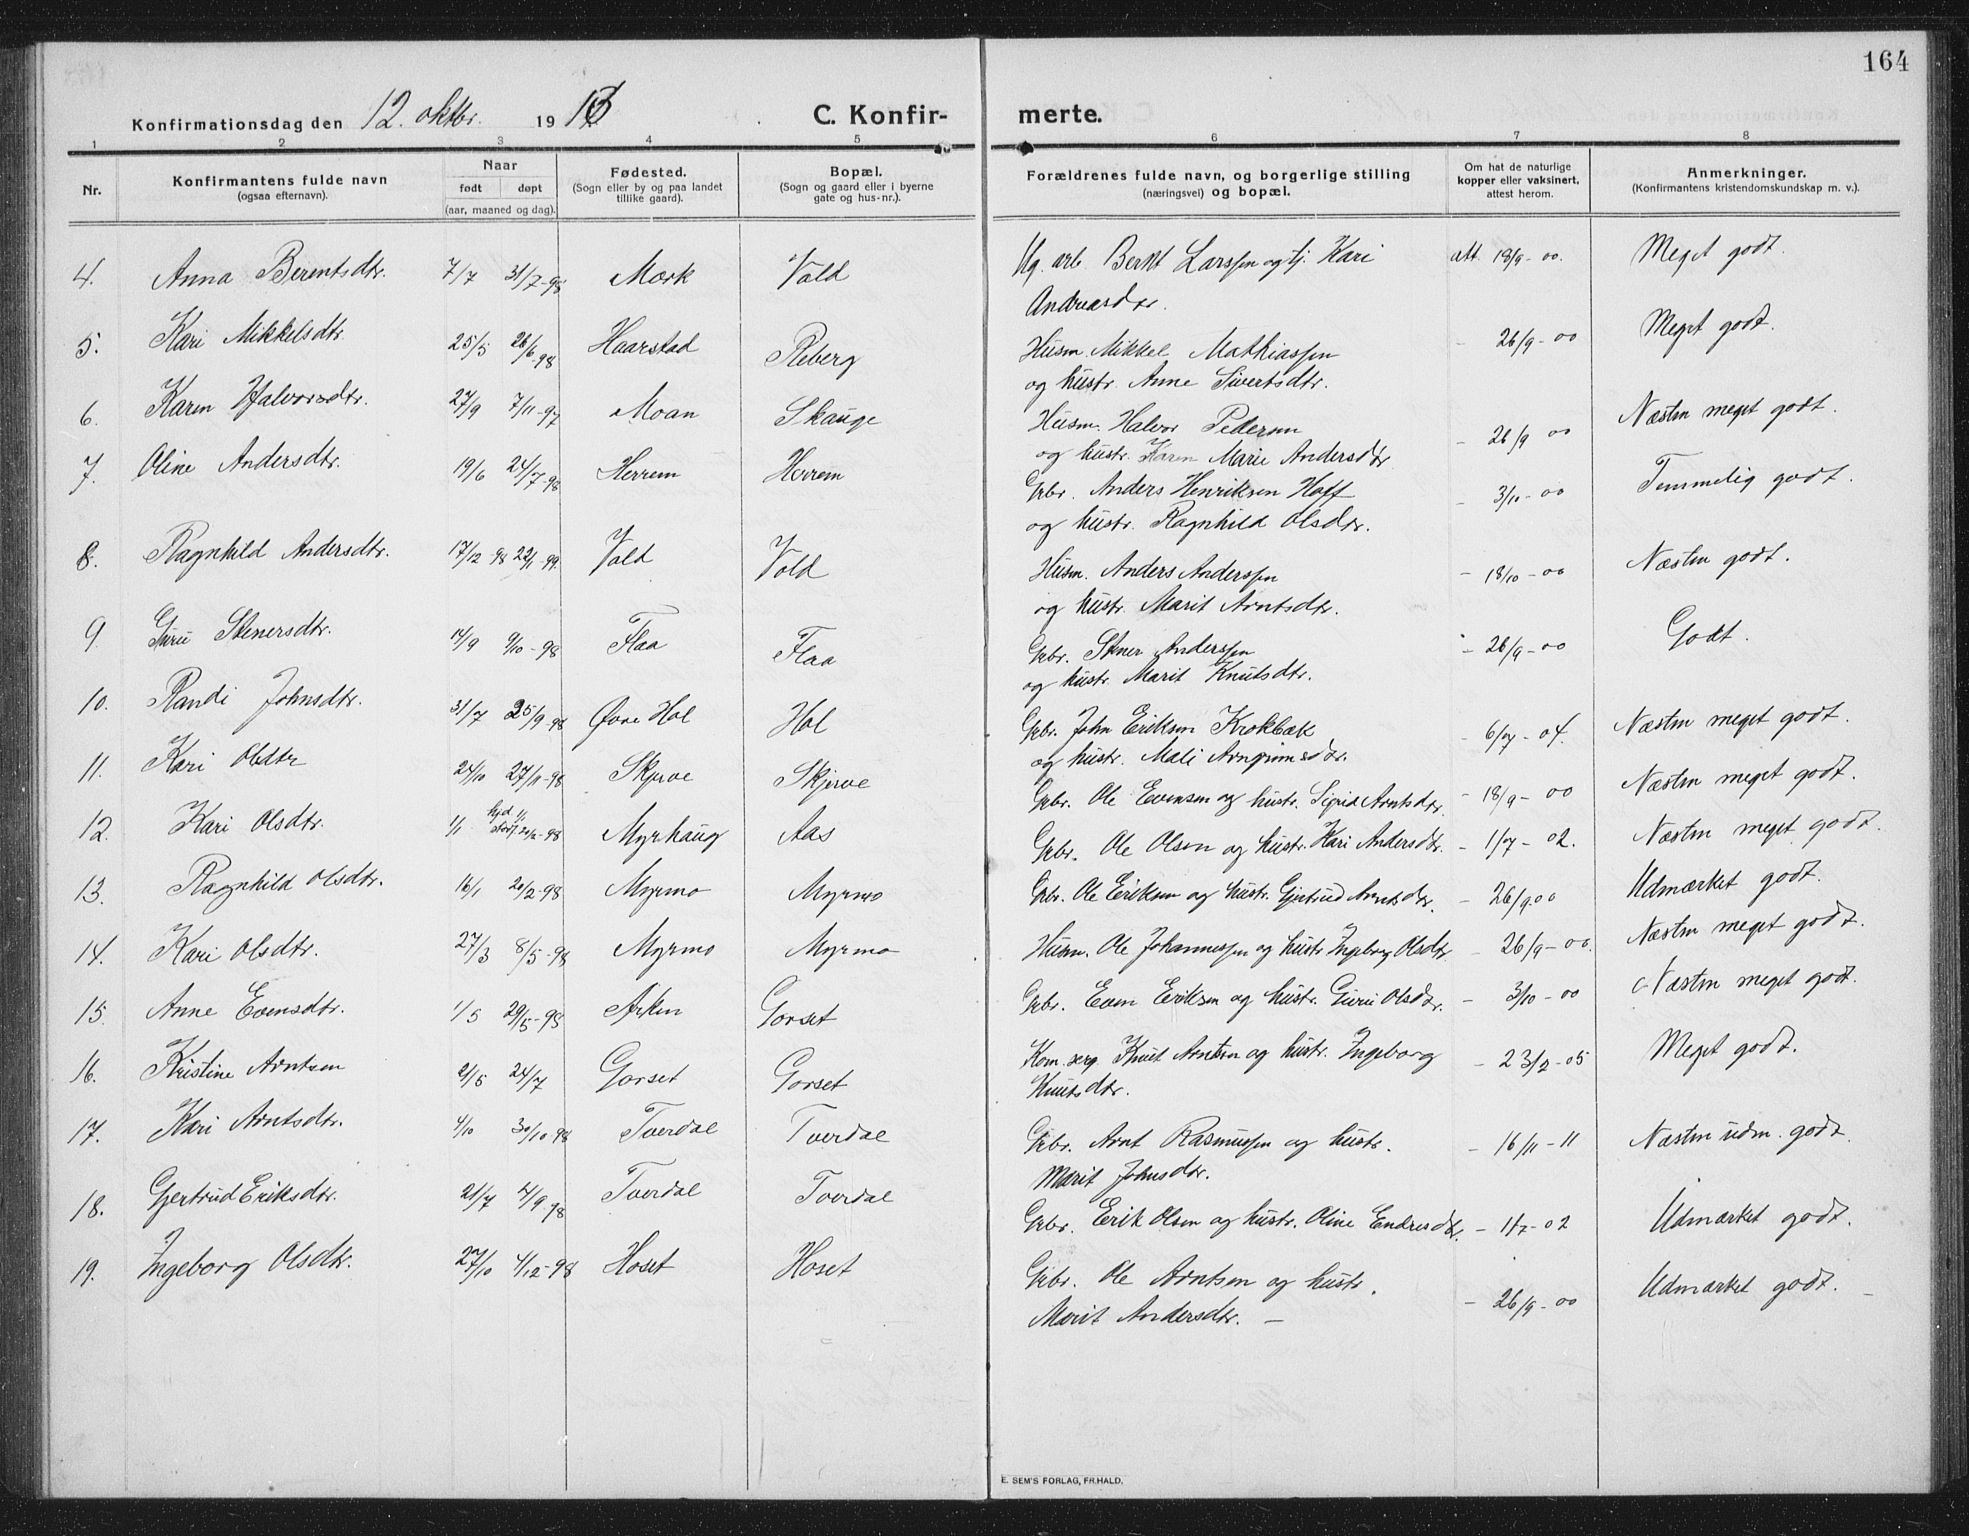 164
Konfirmationsdag den 12. oktbr. 1913
C. Konfir-
merte.
1 2 3 4 5 6 7 8
Nr.
Konfirmantens fulde navn
(ogsaa efternavn).
Naar
født døpt
(aar, maaned og dag).
Fødested.
(Sogn eller by og paa landet
tillike gaard).
Bopæl.
(Sogn og gaard eller i byerne
gate og hus-nr.).
Forældrenes fulde navn, og borgerlige stilling
(næringsvei) og bopæl.
Om hat de naturlige
kopper eller vaksinert,
attest herom.
Anmerkninger.
(Konfirmantens kristendomskundskap m. v.).
4. Anna Berentsdtr. 7/7 31/7-98 Mærk Vold Ug. arb. Bernt Larssen og tj. Kari att. 18/9-00. Meget godt.
Andreasdtr.
5. Kari Mikkelsdtr. 25/5 26/6-98 Haarstad Reberg Husm. Mikkel Mathiassen - 26/9-00 Meget godt.
og hustr. Anne Sivertsdtr.
6. Karen Halvorsdtr. 27/9 7/11-97 Moan Skauge Husm. Halvor Pedersen - 26/9 00 Næsten meget godt.
og hustr. Karen Marie Andersdtr
7. Oline Andersdtr. 19/6 24/7-98 Herrem Herrem Grbr. Anders Henriksen Hoff - 3/10-00 Temmelig godt.
og hustr. Ragnhild Olsdtr.
8. Ragnhild Andersdtr. 17/12 98 22/1-99. Vold Vold Husm. Anders Anderssen - 18/10-00 Næsten godt.
og hustr. Marit Arntsdtr.
9. Guru Stenersdtr. 14/9 9/10-98 Flaa Flaa Grbr. Stener Anderssen - 26/9-00 Godt.
og hustr. Marit Knutsdtr.
10. Randi Johnsdtr. 31/7 25/9-98 Øvre Hol Hol Grbr. John Eriksen Krokbæk - 6/07-04. Næsten meget godt.
og hustr. Mali Arngrimsdtr.
11. Kari Olsdtr 24/10 27/11-98 Skjerve Skjerve Grbr. Ole Evensen og hustr. Sigrid Arntsdtr - 18/9-00 Næsten meget godt.
12. Kari Olsdtr. 1/1 hjd 1/1 20/2-98 Myrhaug Aas Grbr. Ole Olsen og hustr. Kari Andersdtr. - 1/07-02. Næsten meget godt.
13. Ragnhild Olsdtr. 16/1 20/2-98 Myrmo Myrmo Grbr. Ole Eriksen og hustr. Gjertrud Arntsdtr. - 26/9.00 Udmærket godt.
14. Kari Olsdtr. 27/3 8/5-98 Myrmo Myrmo Husm. Ole Johannessen og hustr Ingeborg Olsdtr - 26/9-00. Næsten meget godt.
15. Anne Evensdtr. 1/5 29/5-98 Gorset Grbr. Even Eriksen og hustr. Guru Olsdtr. - 3/10-00 Næsten meget godt.
16. Kristine Arntsen 2/5 24/7 Gorset Gorset Kom. serg. Knut Arntsen og hustr. Ingeborg - 23/2-05 Meget godt.
Knutsdtr.
17. Kari Arntsdtr. 4/10 30/10 98 Tverdal Tverdal Grbr. Arnt Rasmussen og hustr. - 16/11-11 Næsten udm. godt.
Marit Johnsdtr.
18. Gjertrud Eriksdtr. 21/7 4/9 98 Tverdal Tverdal Grbr. Erik Olsen og hustr. Oline Endresdtr. - 1/7-02 Udmærket godt.
19. Ingeborg Olsdtr. 27/10 4/12-98 Hoset Hoset Grbr. Ole Arntsen og hustr. - 26/9-00 Udmærket godt. -
Marit Andersdtr. -
E. SEM'S FORLAG, FR.HALD.